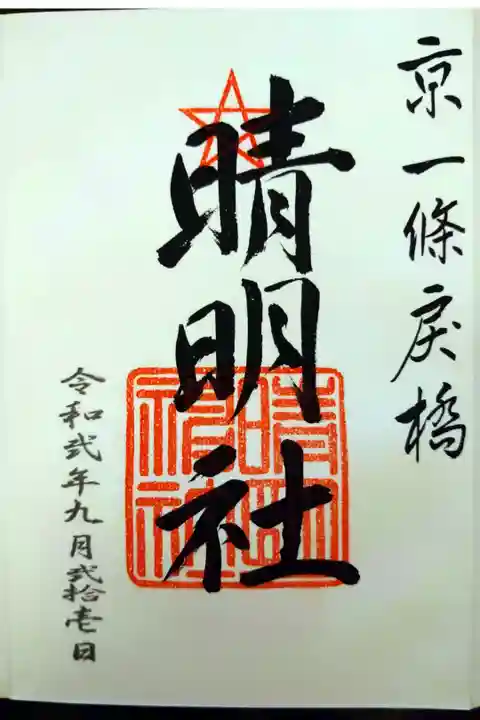 京一條戻橋
晴明社
令和弐年九月弐拾壱日